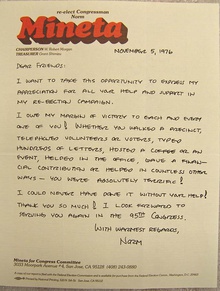 re-elect Congressman
Norm
Mineta
CHAIRPERSON
TREASURER
NOVEMBER 5, 1976
DEAR FRIENDS:
I WANT TO TAKE THIS OPPORTUNITY TO EXPRESS MY
APPRECIATION FOR ALL YOUR HELP AND SUPPORT IN
MY RE-ELECTION CAMPAIGN.
I OWE MY MARGIN OF VICTORY TO EACH AND EVERY
ONE OF YOU! WHETHER YOU WALKED A PRECINCT,
TELEPHONED VOLUNTEERS OR VOTERS, TYPED
HUNDREDS OF LETTERS, HOSTED A COFFEE OR AN
EVENT, HELPED IN THE OFFICE, GAVE A FINAN-
CIAL CONTRIBUTION OR HELPED IN COUNTLESS OTHER
WAYS — YOU WERE ABSOLUTELY TERRIFIC!
I COULD NEVER HAVE DONE IT WITHOUT YOUR HELP!
THANK YOU SO MUCH! I LOOK FORWARD TO
SERVING YOU AGAIN IN THE 95TH CONGRESS.
WITH WARMEST REGARDS,
NORM
Mineta for Congress Committee